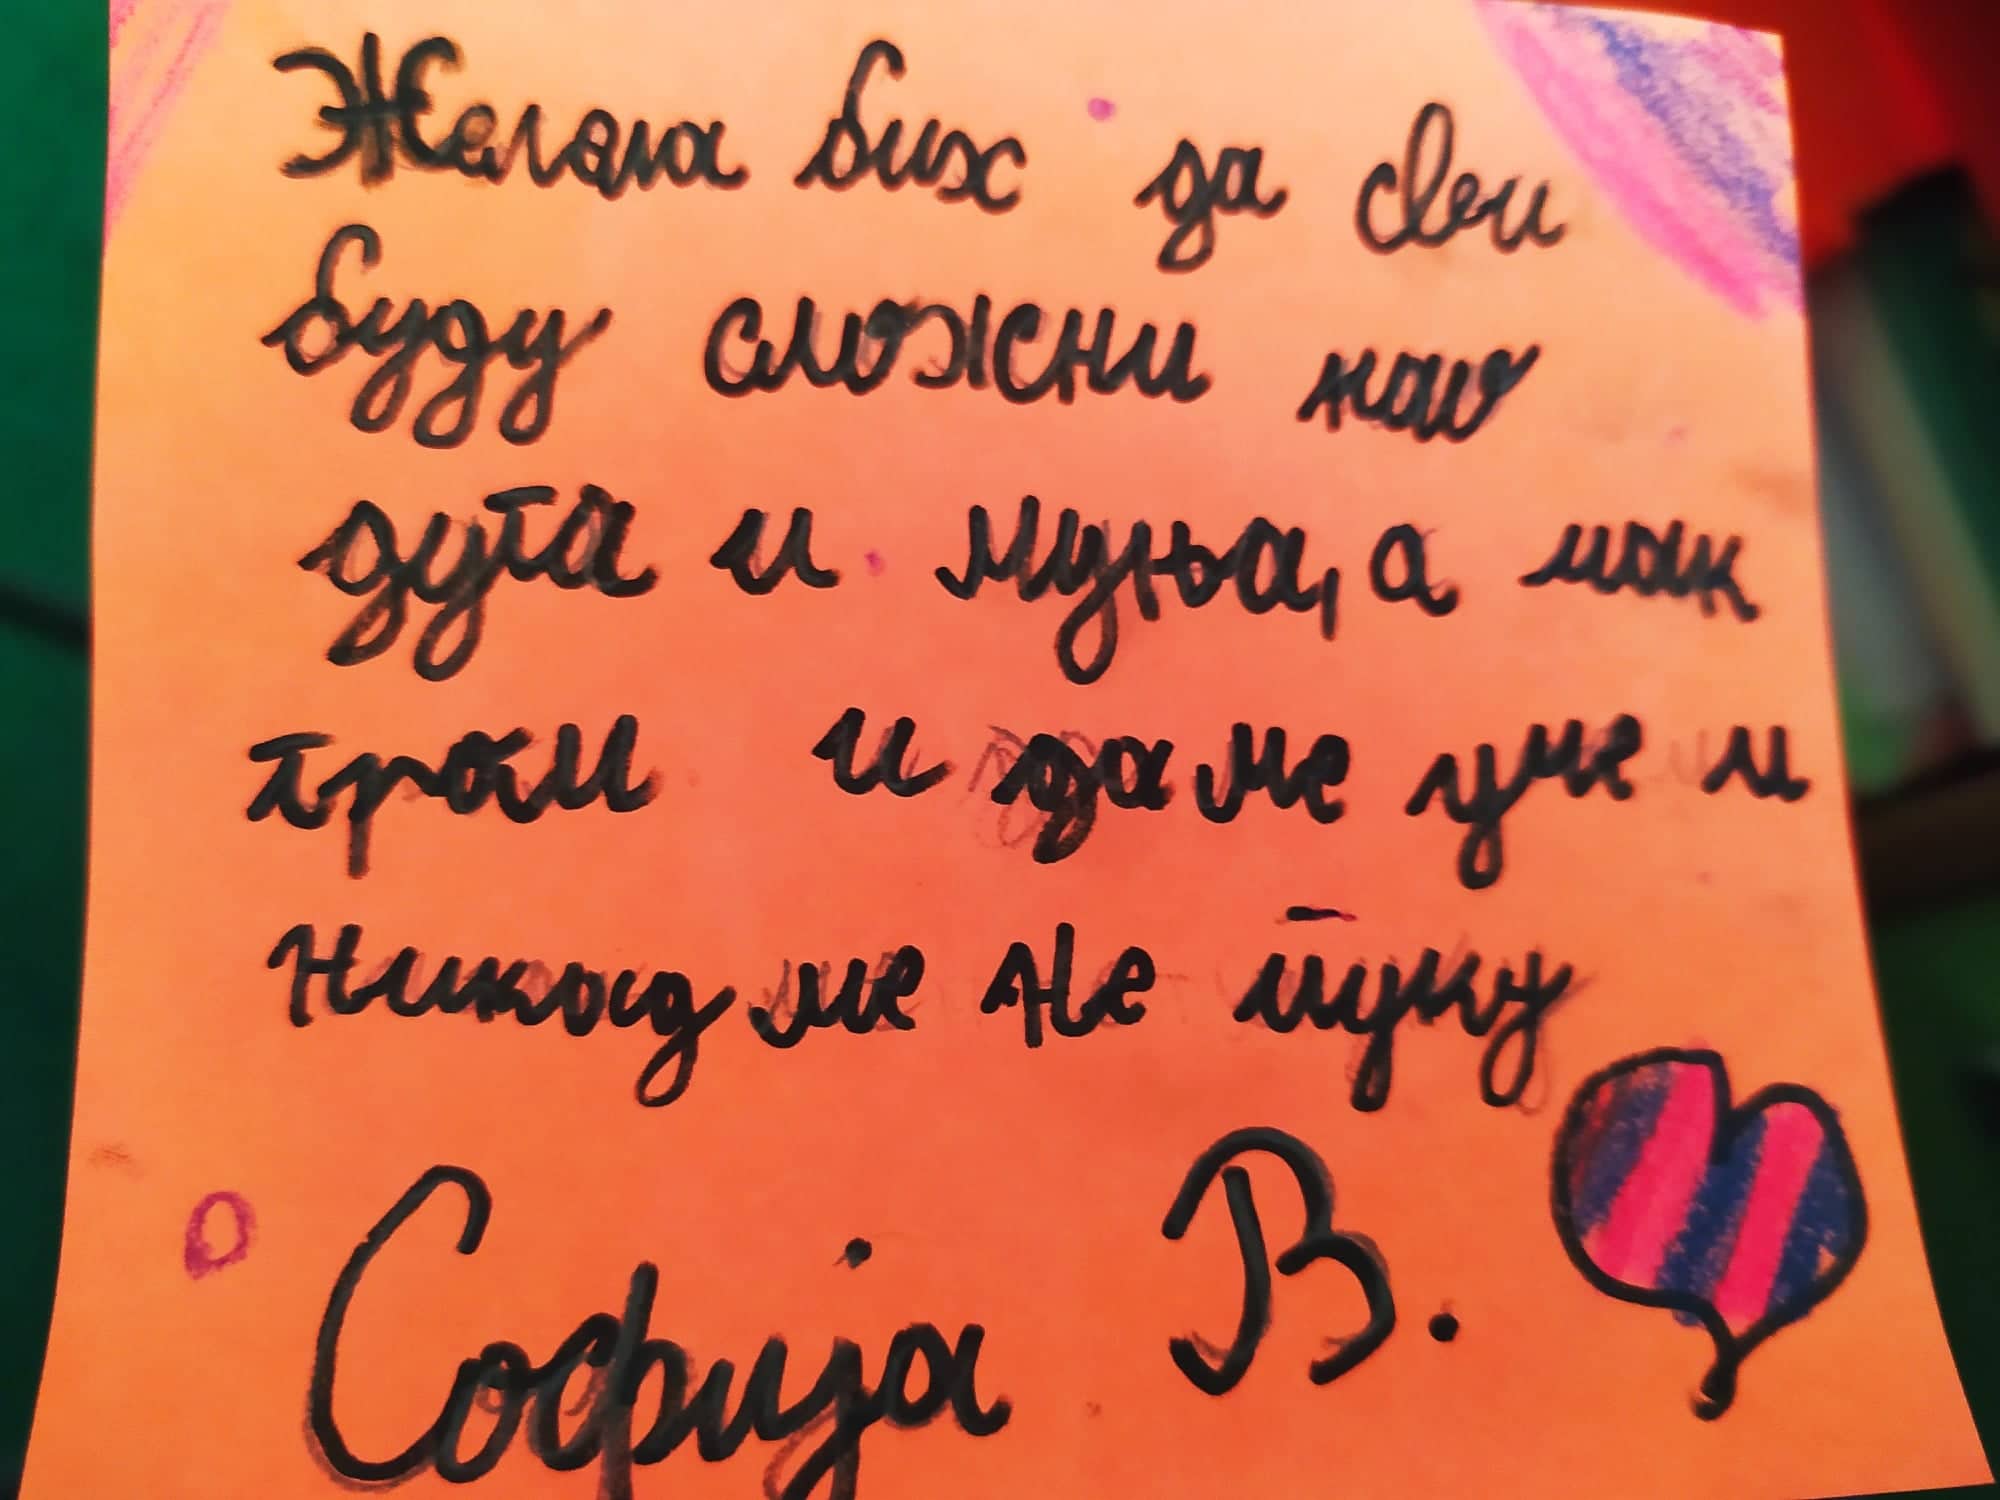 Желела бих да сви
буду сложни као
дуга и муња, а мак
гром и да ме уме и
никад ме не
Софија В.